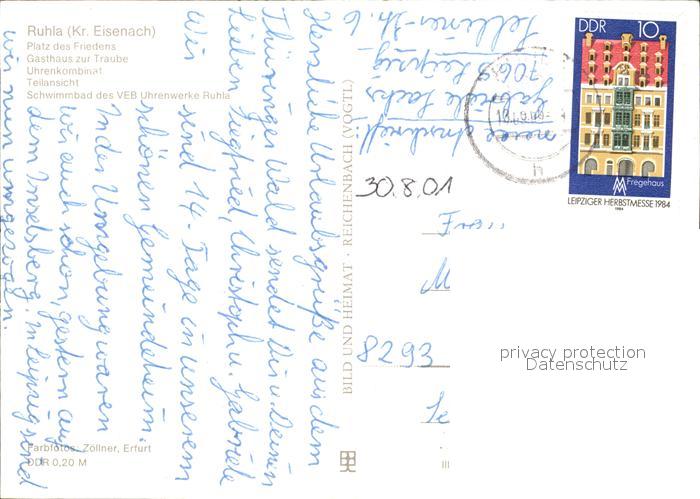 Ruhla (Kr. Eisenach)
Platz des Friedens
Gasthaus zur Traube
Uhrenkombinat
Teilansicht
Schwimmbad des VEB Uhrenwerke Ruhla
Herzliche Urlaubsgrüße aus dem
Thüringer Wald sendet Dir u. Deinen
Lieben Siegfried, Christoph u. Gabriele
Wir sind 14 Tage in unserem
schönen Gemeindeheim.
In der Umgebung waren
wir auch schon, gestern auf
dem Inselsberg. In Leipzig sind
wir nun umgezogen.
meine Anschrift:
Gabriele
7065 Leipzig
Str. 6
DDR 10
Fregehaus
LEIPZIGER HERBSTMESSE 1984
1984
30.8.01
8293
privacy protection
Datenschutz
BILD UND HEIMAT · REICHENBACH (VOGTL)
Farbfotos: Zöllner, Erfurt
DDR 0,20 M
III